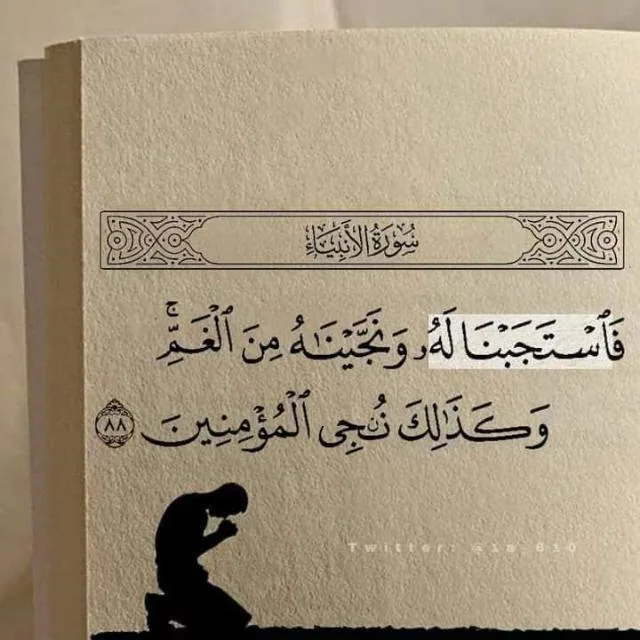 سُورَةُ الأَنبِيَاءِ
فَٱسۡتَجَبۡنَا لَهُۥ وَنَجَّيۡنَٰهُ مِنَ ٱلۡغَمِّۚ
وَكَذَٰلِكَ نُۨجِي ٱلۡمُؤۡمِنِينَ ٨٨